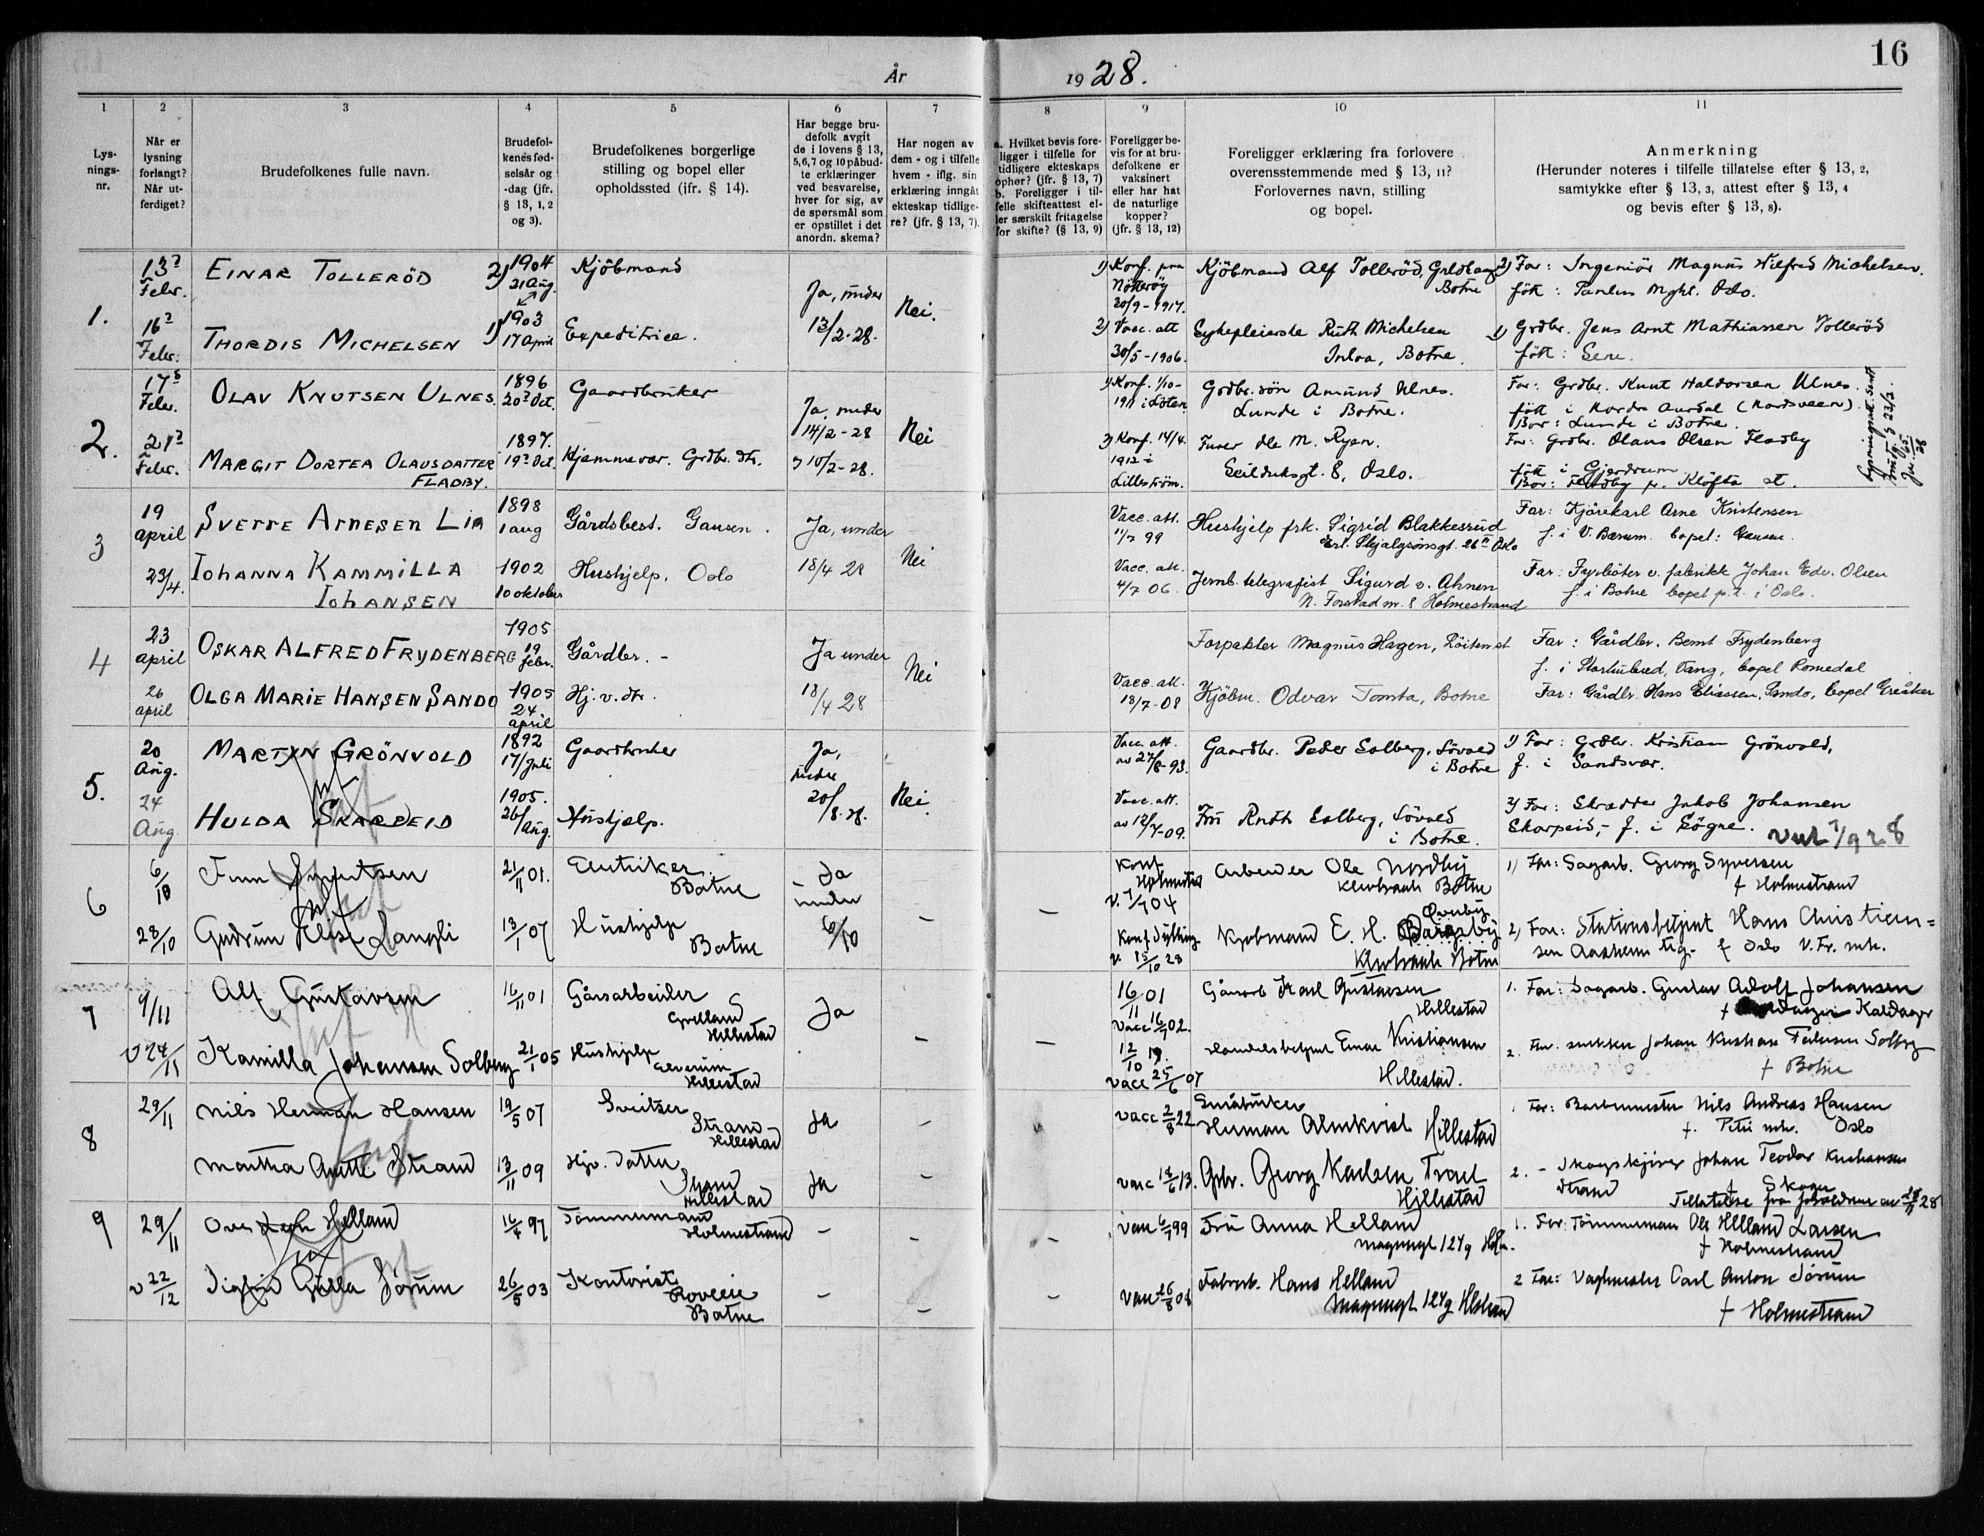 År 1928.
16
1 2 3 4 5 6 7 8 9 10 11
Lys-
nings-
nr.
Når er
lysning
forlangt?
Når ut-
ferdiget?
Brudefolkenes fulle navn.
Brudefol-
kenes fød-
selsår og
-dag (jfr.
§ 13, 1, 2
og 3).
Brudefolkenes borgerlige
stilling og bopel eller
opholdssted (jfr. § 14).
Har begge bru-
defolk avgit
de i lovens § 13,
5,6,7 og 10 påbud-
te erklæringer
ved besvarelse,
hver for sig, av
de spørsmål som
er opstillet i det
anordn. skema?
Har nogen av
dem - og i tilfelle
hvem - iflg. sin
erklæring inngått
ekteskap tidlige-
re? (jfr. § 13, 7).
a. Hvilket bevis fore-
ligger i tilfelle for
tidligere ekteskaps
ophør? (jfr. § 13, 7)
b. Foreligger i til-
felle skifteattest el-
ler særskilt fritagelse
for skifte? (§ 13, 9)
Foreligger be-
vis for at bru-
defolkene er
vaksinert
eller har hat
de naturlige
kopper?
(jfr. § 13, 12)
Foreligger erklæring fra forlovere
overensstemmende med § 13, 11?
Forlovernes navn, stilling
og bopel.
Anmerkning
(Herunder noteres i tilfelle tillatelse efter § 13, 2,
samtykke efter § 13, 3, attest efter § 13, 4
og bevis efter § 13, 8).
1.
13?
Febr.
EINAR TOLLERÖD
2) 1904
21 Aug.
Kjöbmand
Ja, under
13/2-28.
Nei.
1) Konf. paa
Nötterøy
20/9-1917.
Kjöbmand Alf Tolleröd,
Botne
2) Far: Ingeniör Magnus Wilfred Michelsen.
fök: Oslo.
16?
Febr.
THORDIS MICHELSEN
1) 1903
17 April
Expeditrice.
2) Vacc. att
30/5-1906.
Sykepleierske Ruth Michelsen
Botne.
1) Grdbr. Jens Arnt Mathiassen Tolleröd
fök: Sem.
2.
17
Febr.
OLAV KNUTSEN ULNES.
1896
20? Oct.
Gaardbruker
Ja, under
14/2-28
Nei
1) Konf. 1/10-
1911 i Löten
Grdbr. sön Amund Ulnes.
Lunde i Botne.
Far: Grdbr. Knut Haldorsen Ulnes.
fök i Nordre Aurdal (Nordsveen).
Bor: Lunde i Botne.
21?
Febr.
MARGIT DORTEA OLAUSDATTER
FLADBY.
1897.
19? Oct.
Hjemmevær. Grdbr. dtr.
10/2-28.
2) Konf. 14/4.
1912 i
Lilleström.
Fruer dle M. Ryen.
Seilduksgt. 8, Oslo.
Far: Grdbr. Olaus Olsen Fladby
fök i Gjerdrum
Bor: Fladby pr. Klöfta st.
3
19
april
SVERRE ARNESEN LIA
1898
1 aug
Gårdsbest. Gausen.
Ja, under
18/4 28
Nei
Vacc. att.
11/7 99
Hushjelp frk. Sigrid Blakkesrud
Erl. Skjalgsönsgt. 26 II Oslo
Far: Kjörekarl Arne Kristensen
f. i V. Bærum. bopel: Gausen.
23/4.
JOHANNA KAMMILLA
JOHANSEN
1902
10 oktober
Hushjelp, Oslo
Vacc. att.
4/7 06.
Jernb. telegrafist Sigurd v. Ahnen
N. Forstad nr. 8 Holmestrand
Far: Fyrböter v. fabrikk Johan Edv. Olsen
f. i Botne bopel p.t. i Oslo.
4
23
april
OSKAR ALFRED FRYDENBERG
1905
19
febr.
Gårdbr. -
Ja under
18/4 28
Nei
Forpakter Magnus Hagen, Löiten st
Far: Gårdbr. Bernt Frydenberg
f. i Vang, bopel Romedal
26
april
OLGA MARIE HANSEN SANDO
1905
24
april
Hj. v. dtr.
Vacc. att.
18/7-08
Kjöbm. Odvar Tomta, Botne
Far: Gårdbr. Hans Eliassen, Sando, bopel Greåker
5.
20
Aug.
MARTIN GRÖNVOLD
1892
17/Juli
Gaardbruker
Ja,
under
20/8-28.
Nei.
Vacc. att.
av 27/8-93.
Gaardbr. Peder Solberg, Lövald
i Botne
1) Far: Grdbr. Kristian Grönvold,
f. i Sandsvær.
24
Aug.
HULDA SKARPEID
1905.
26/Aug.
Hushjelp.
Vacc. att.
av 12/7-09.
Fru Ruth Solberg, Lövald
i Botne.
2) Far: Skrædder Jakob Johansen
Skarpeid,- f. i Sögne.
7/9 28
6
6/10
Finn Syvertsen
21/11 01.
Botne
Ja
under
6/10
-
-
Konf
Holmestrand
v. 7/7 04
Arbeider Ole Nordby
Botne
1) Far: Sagarb. Georg Syversen
f Holmestrand
28/10
Gudrun Elise Langli
13/1 07
Hushjelp
Botne
v 15/10 28
Kjøbmand E. H.
Botne
2) Far: Stationsbetjent Hans Christian=
sen f Oslo V. Fr. mh.
7
9/11
Alf Gustavsen
16/11 01
Gårdsarbeider
Grelland
Hillestad
Ja
-
-
16/11 01
vacc 16/7 02.
Gårdarb Karl Gustavsen
Hillestad
1. Far: Sagarb. Gustav Adolf Johansen
v 24/11
Kamilla Johansen Solberg
21/1 05
Hushjelp
Hillestad
12/10 19.
vacc 25/6 07
Handelsbetjent Einar Kristiansen
Hillestad.
2. Far: snekker Johan Kristian Solberg
f Botne
8
29/11
Nils Herman Hansen
19/5 07
Sveitser
Strand
Hillestad
Ja
-
-
vacc 2/8 22
Småbruker
Herman Almkvist Hillestad
Far: Barbermester Nils Andreas Hansen
f. Petri mh. Oslo
Martha Strand
13/11 09
Hjv. datter
Strand
Hillestad
Ja
-
vacc 18/6 13.
Gbr. Georg Karlsen
Hillestad
2. - Johan Teodor Kristiansen
Strand f Skoger
9
29/11
Helland
16/4 97
Tømmermand
Holmestrand
-
-
-
vacc 6/7 99
Fru Anna Helland
1. Far: Tømmermann Ole Helland Larsen
f Holmestrand
v 22/12
Gulla Sørum
26/5 03
Kontorist
Botne
-
-
-
vacc 26/8 08
Fabrarb. Hans Helland
2 Far: Vagtmester Carl Anton Sørum
f Holmestrand